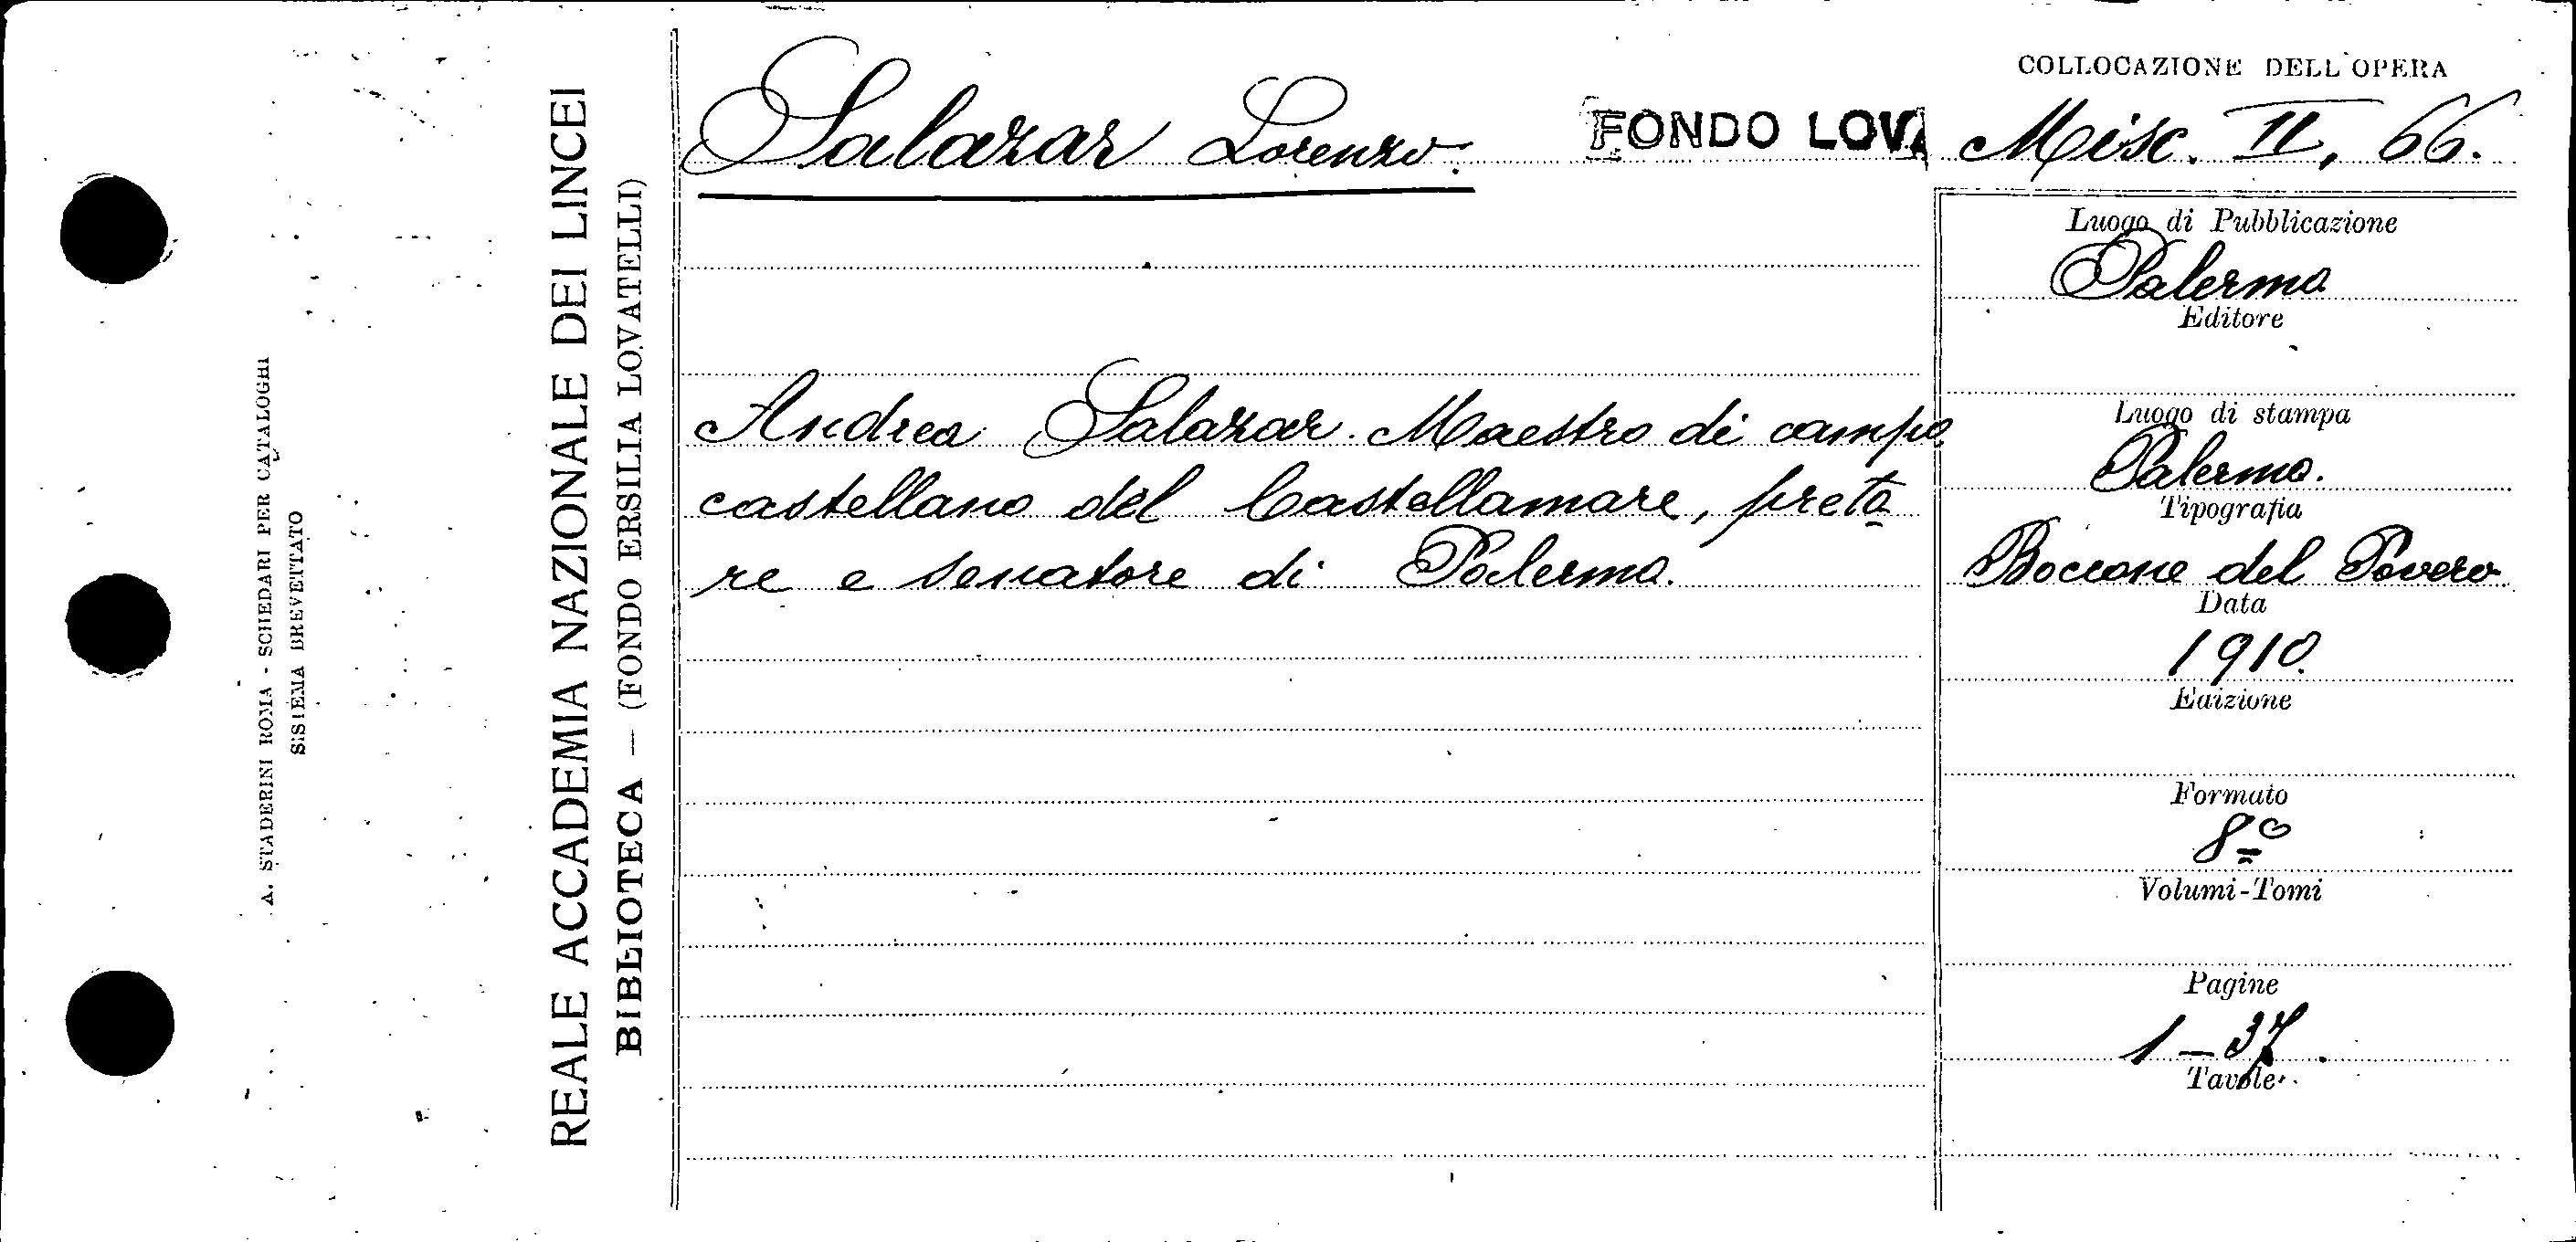 A. STADERINI ROMA - SCHEDARI PER CATALOGHI
SISTEMA BREVETTATO
REALE ACCADEMIA NAZIONALE DEI LINCEI
BIBLIOTECA — (FONDO ERSILIA LOVATELLI)
Salazar Lorenzo.
FONDO LOV.
COLLOCAZIONE DELL'OPERA
Misc. II, 66.
Andrea Salazar. Maestro di campo,
castellano del Castellamare, preto
re e senatore di Palermo.
Luogo di Pubblicazione
Palermo
Editore
Luogo di stampa
Palermo.
Tipografia
Boccone del Povero
Data
1910.
Edizione
Formato
8º
Volumi-Tomi
Pagine
1-37.
Tavole